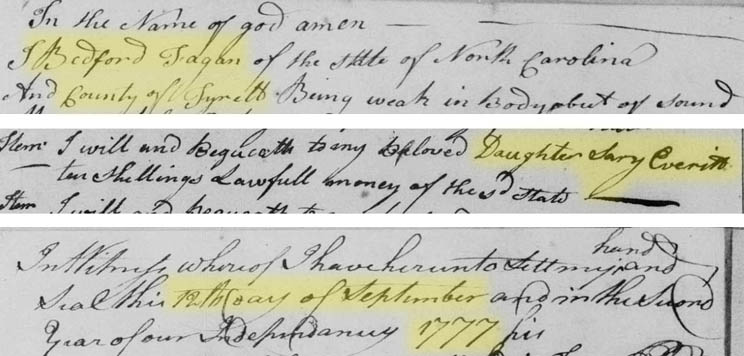 In the Name of god amen
I Bedford Fagan of the state of North Carolina
And County of Tyrell Being weak in Body but of sound
Item I will and bequeath to my beloved Daughter Sary Everitt
ten shellings Lawfull money of the sd State
Item I will and bequeath to
In Witness whereof I have hereunto Sett my hand and
Seal this 12th day of September and in the Second
Year of our Independancy 1777